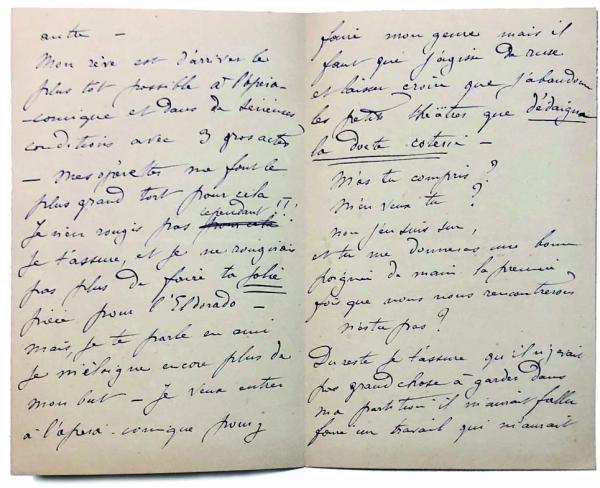 autre –
Mon rêve est d'arriver le
plus tôt possible à l'opéra-
-comique et dans de sérieuses
conditions avec 3 gros actes
– mes opérettes me font le
plus grand tort pour cela –
Je n'en rougis pas pour cela cependant !!
Je t'assure, et je ne rougirais
pas plus de faire ta jolie
pièce pour l'Eldorado –
mais, je te parle en ami
Je m'éloigne encore plus de
mon but – Je veux entrer
à l'opéra-comique pour y
faire mon genre mais il
faut que j'agisse de ruse
et laisser croire que j'abandonne
les petits théâtres que dédaigne
la docte coterie –
M'as tu compris ?
M'en veux tu ?
non j'en suis sur,
et tu me donneras une bonne
poignée de main la première
fois que nous nous rencontrerons
n'est tu pas ?
Du reste je t'assure qu'il n'y avait
pas grand chose à garder dans
ma partition il m'aurait fallu
faire un travail qui m'aurait